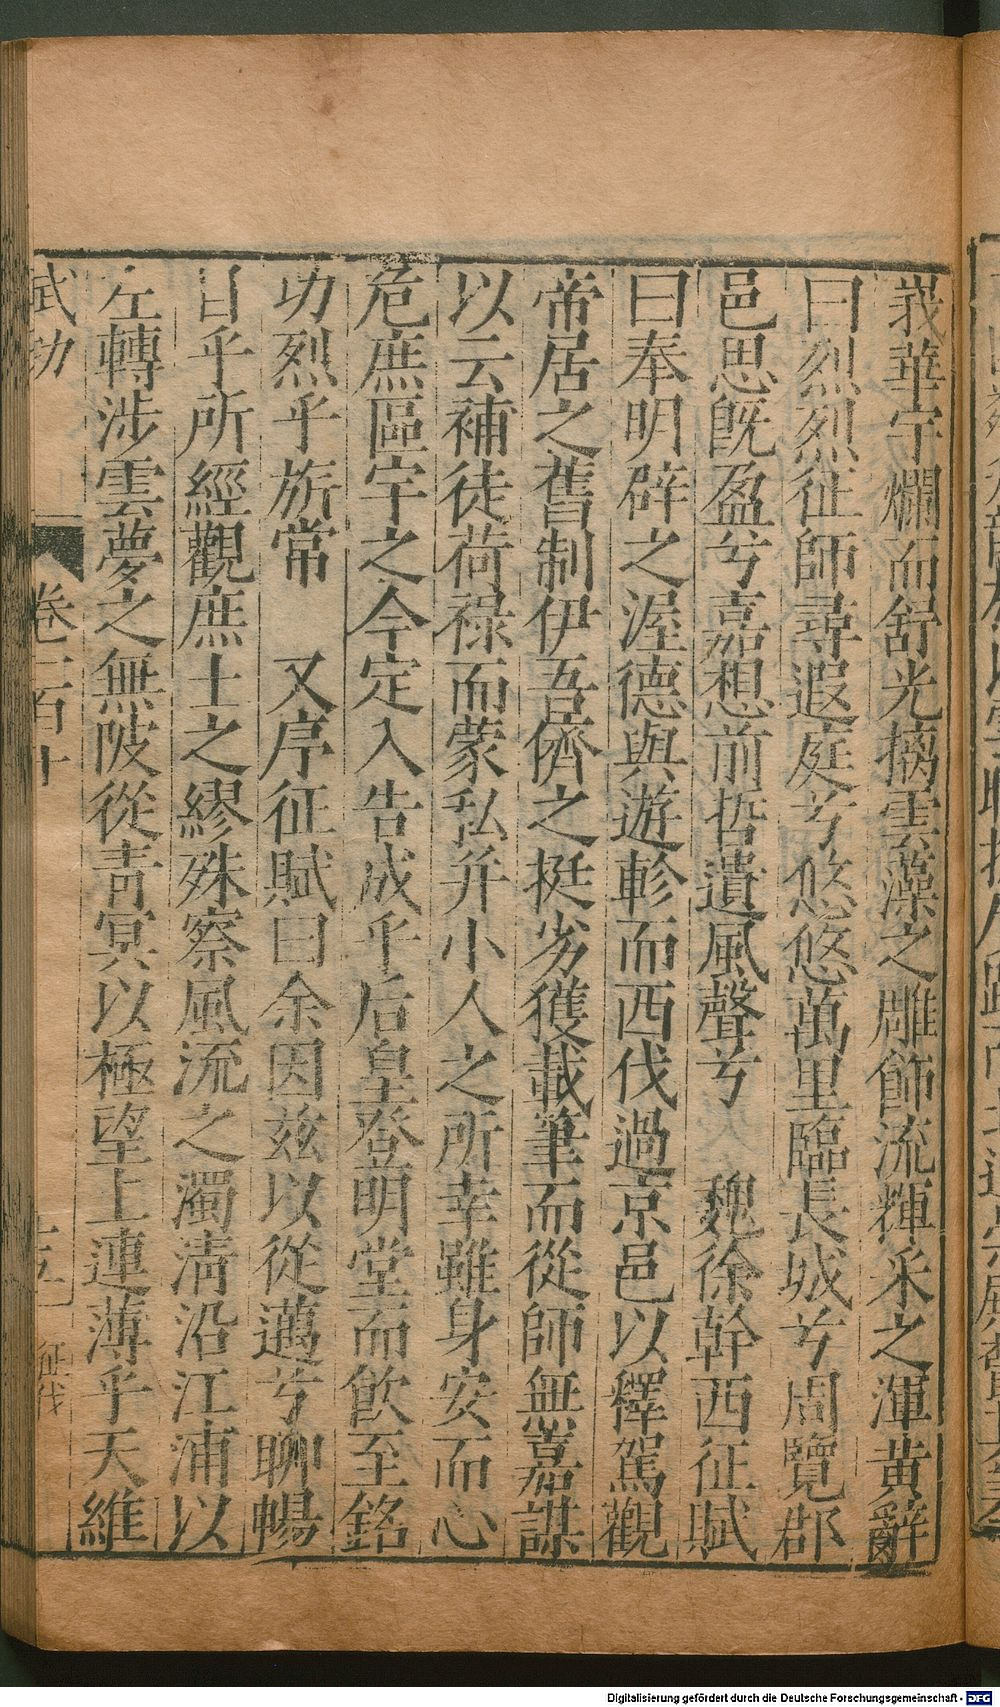 羛華宇爛而舒光摛雲藻之雕飾流輝采之渾黄辭
曰烈烈征師尋遐庭兮悠悠萬里臨長城兮周覽郡
邑思既盈兮嘉想前哲遺風聲兮 魏徐幹西征賦
曰奉明辟之渥德與遊軫而西伐過京邑以釋駕觀
帝居之舊制伊吾儕之挺劣獲載筆而從師無嘉謀
以云補徒荷禄而蒙私并小人之所幸雖身安而心
危庶區宇之今定入告成乎后皇登明堂而飲至銘
功烈乎旂常 又序征賦曰余因兹以從邁兮聊暢
目乎所經觀庶士之繆殊察風流之濁淸沿江浦以
左轉涉雲夢之無陂從靑冥以極望上連薄乎天維
武功 卷二百十 十五 征伐
Digitalisierung gefördert durch die Deutsche Forschungsgemeinschaft - DFG